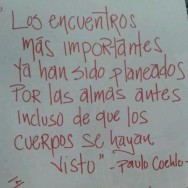 "Los encuentros
más importantes
ya han sido planeados
por las almas antes
incluso de que los
cuerpos se hayan
visto" -Paulo Coehlo-